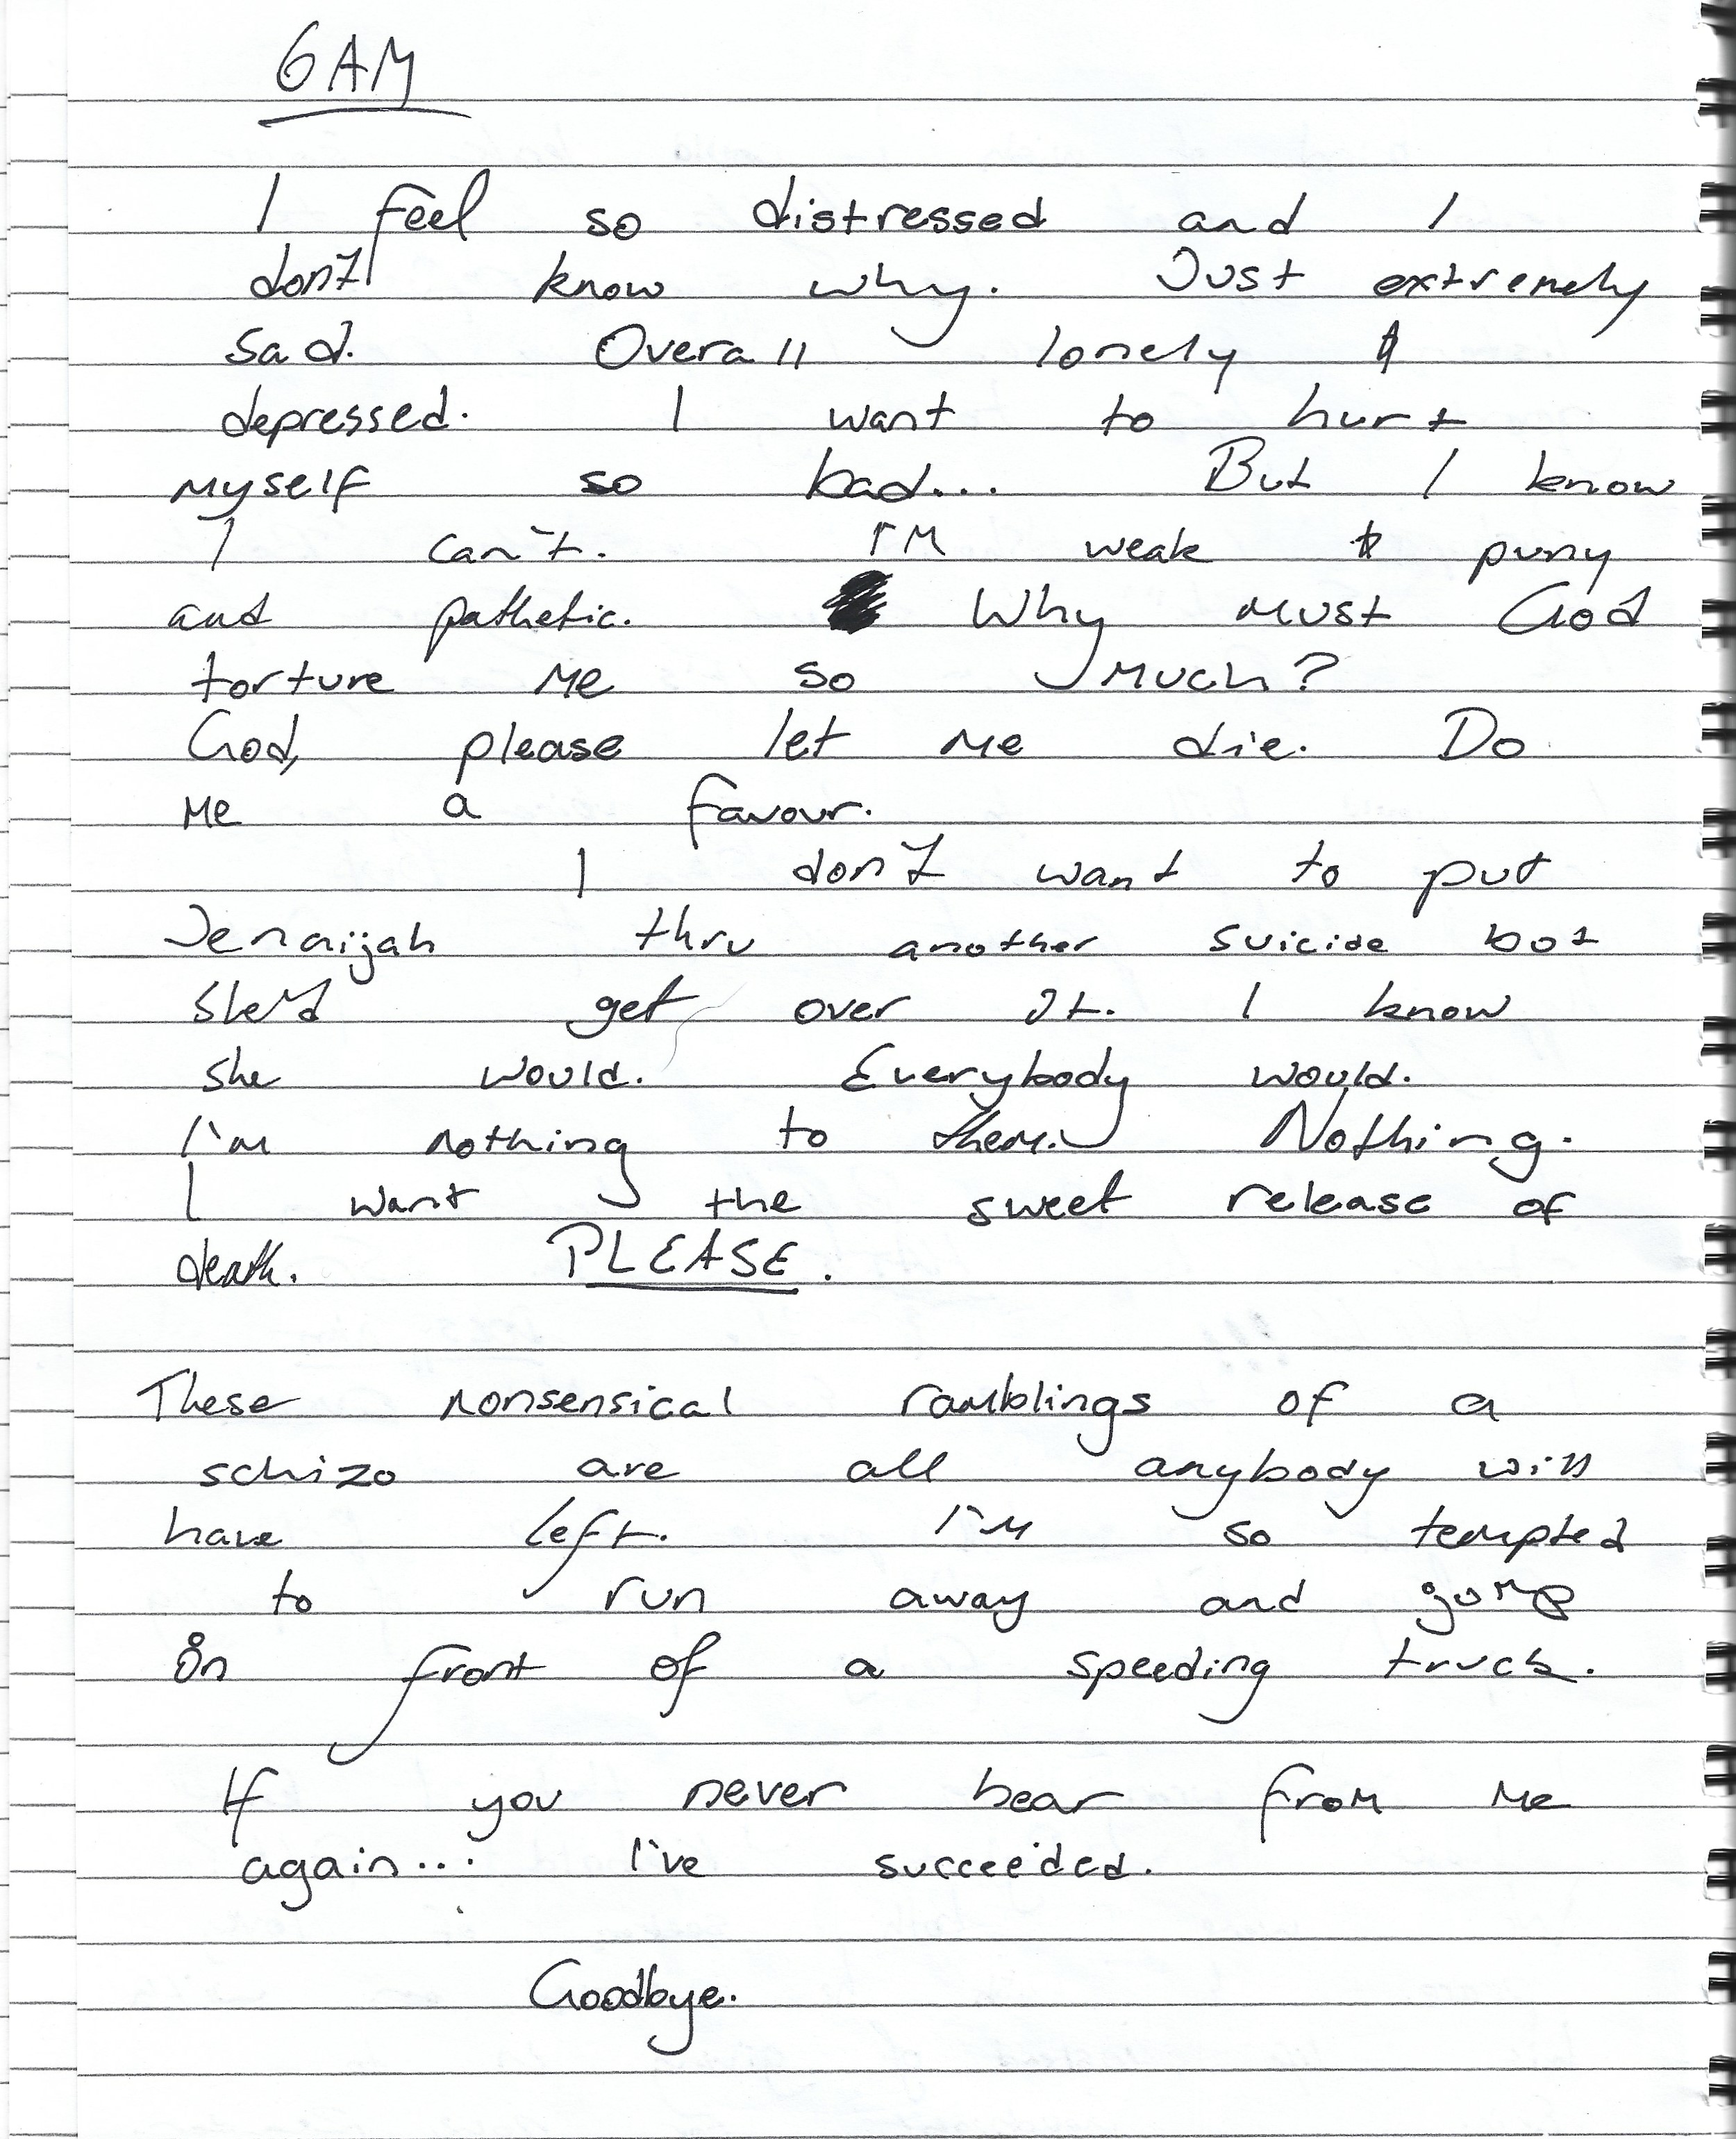 6AM
I feel so distressed and I
don't know why. Just extremely
sad. Overall lonely &
depressed. I want to hurt
myself so bad... But I know
I can't. I'm weak & puny
and pathetic. Why must God
torture me so much?
God, please let me die. Do
me a favour.
I don't want to put
Jenaijah thru another suicide but
she'd get over it. I know
she would. Everybody would.
I'm nothing to them. Nothing.
I want the sweet release of
death. PLEASE.
These nonsensical ramblings of a
schizo are all anybody will
have left. I'm so tempted
to run away and jump
in front of a speeding truck.
If you never hear from me
again... I've succeeded.
Goodbye.